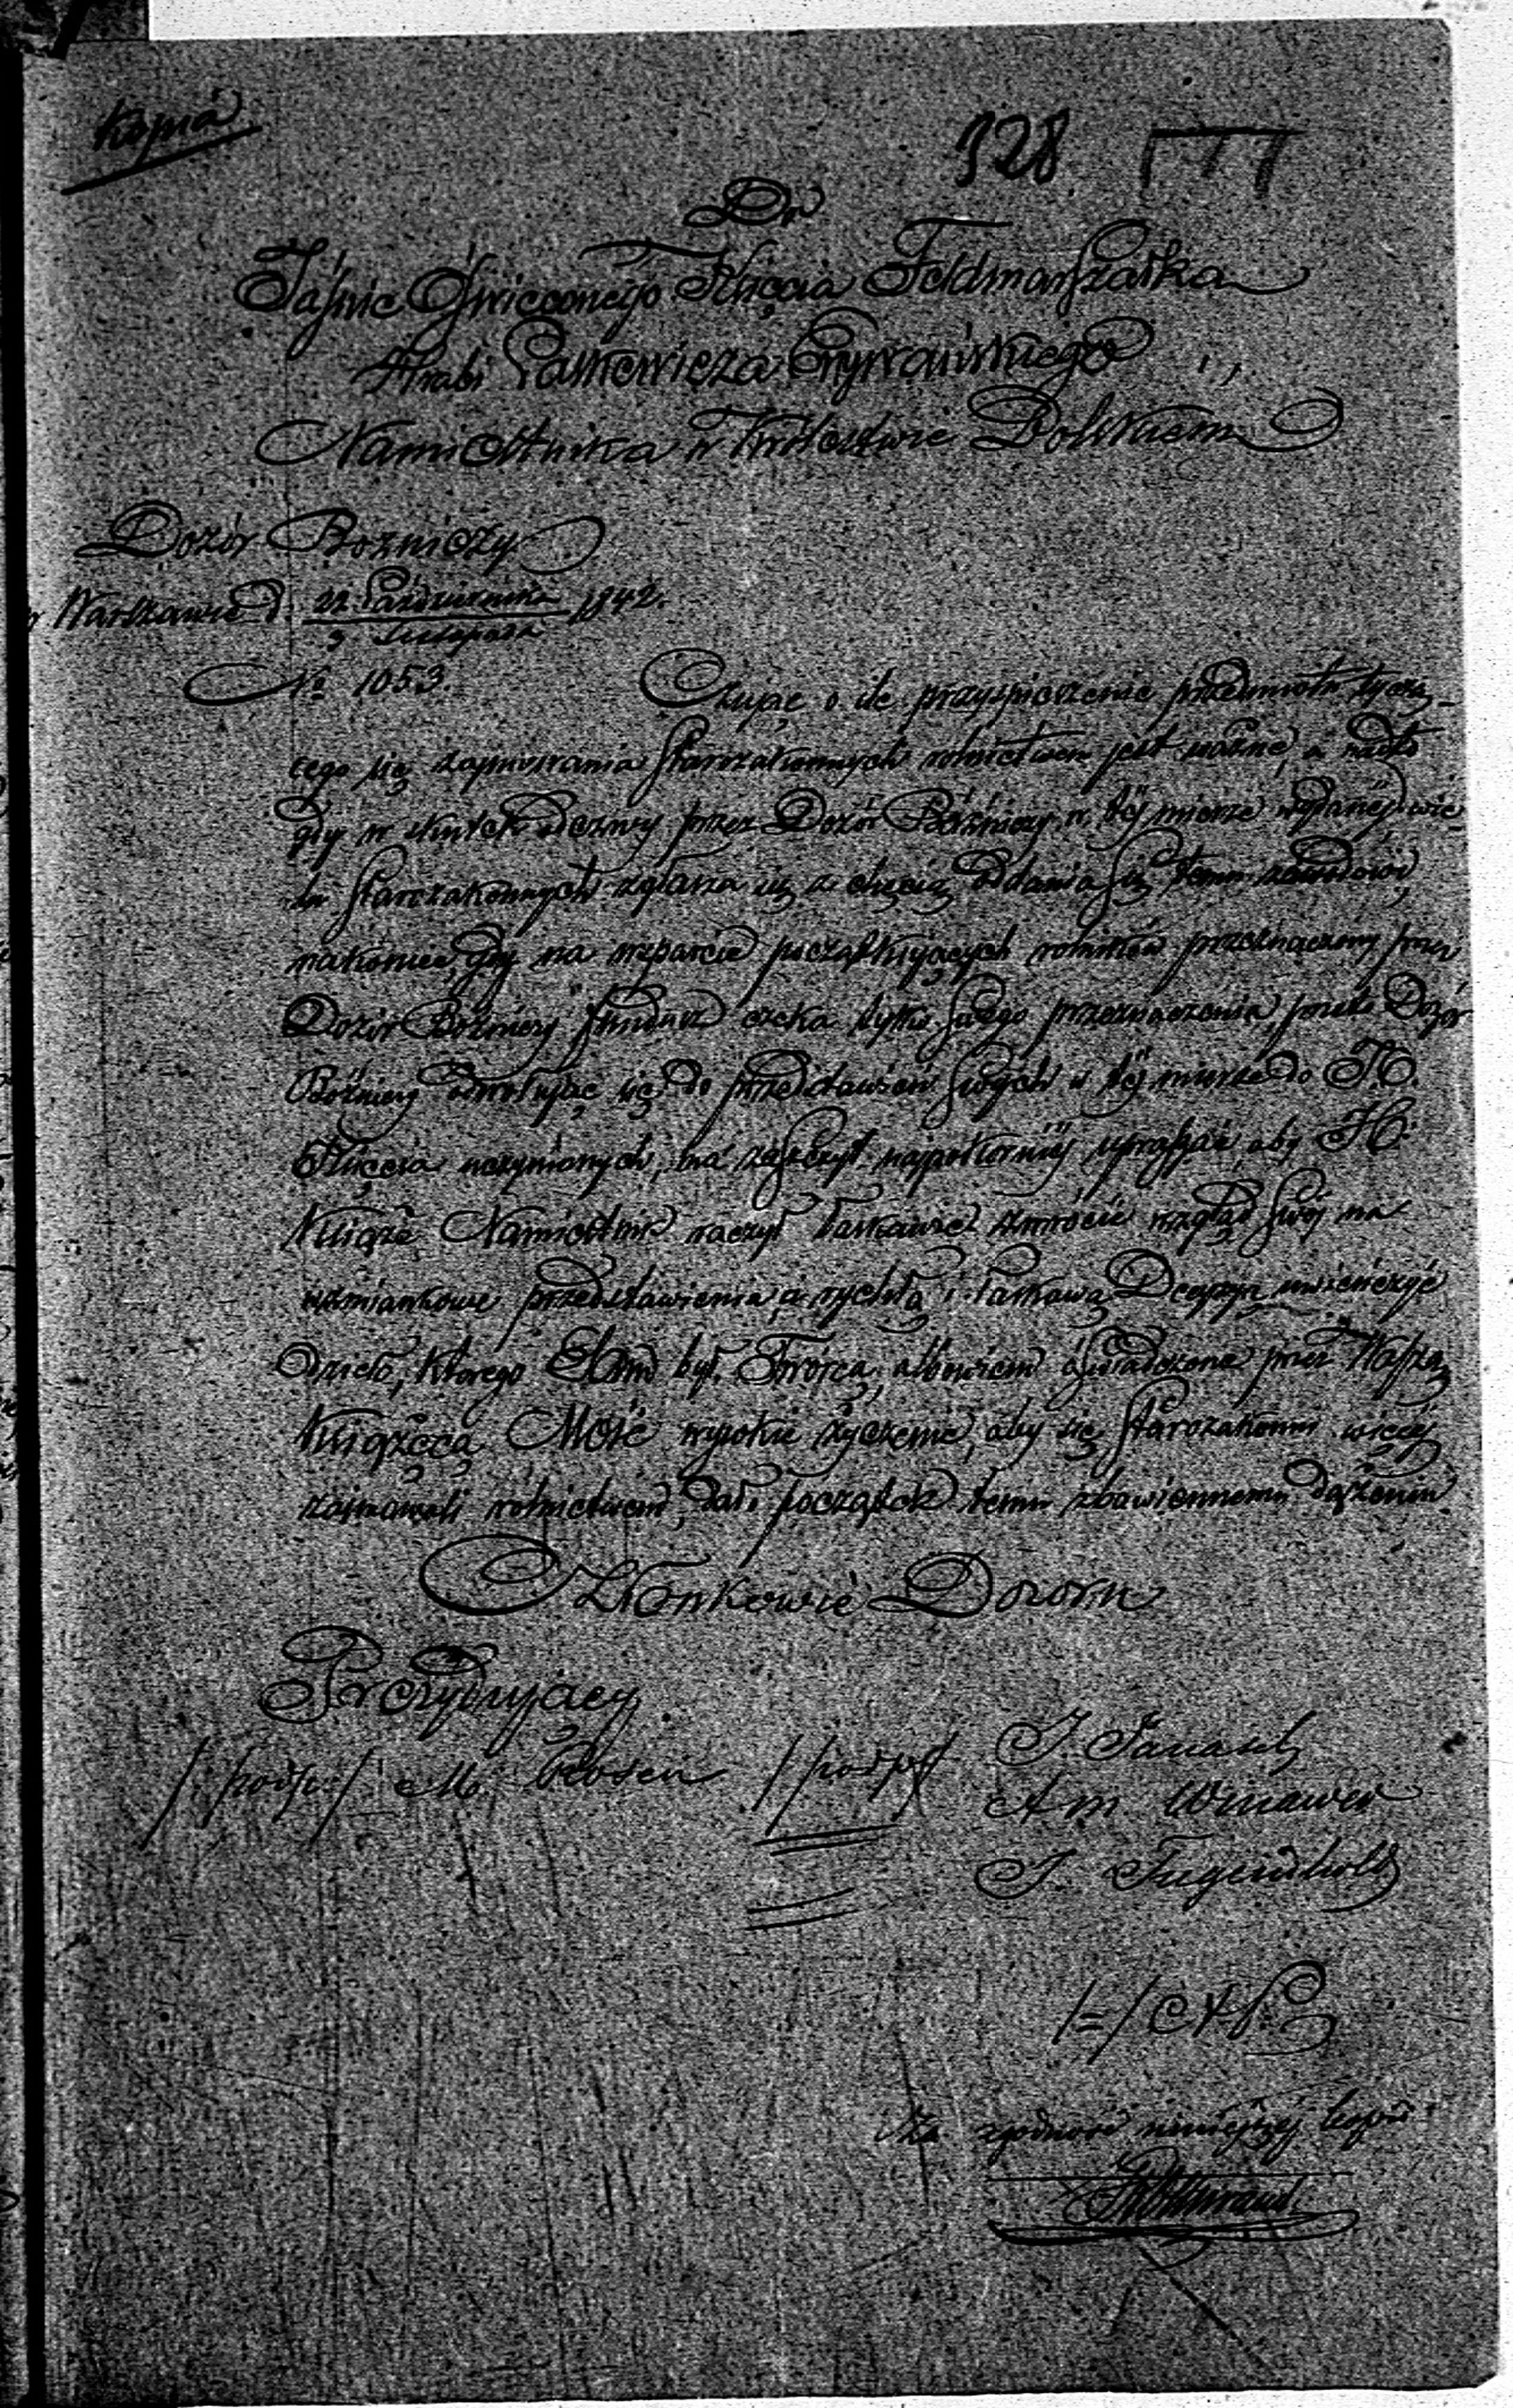 Kopia
328
Do
Jaśnie Oświeconego Xięcia Feldmarszałka
Hrabi Paskewicza Erywańskiego
Namiestnika w Królestwie Polskiem
Dozór Bożniczy
w Warszawie d. 22 Października 1842.
3 Listopada
No 1053.
Czując o ile przyspieszenie przedmiotu tyczą-
cego się zajmowania Starozakonnych rolnictwem jest ważne, a nadto
gdy w skutek odezwy przez Dozór Bóżniczy w tej mierze wydanej wie-
lu Starozakonnych zgłasza się z chęcią oddania się temu zawodowi,
nakoniec gdy na wsparcie początkujących rolników przeznaczony przez
Dozór Bóżniczy fundusz czeka tylko swego przeznaczenia, przeto Dozór
Bóżniczy odwołując się do przedstawień swych w tej mierze do J. O.
Xięcia uczynionych, ma zaszczyt najpokorniej upraszać, aby J. O.
Xiąże Namiestnik raczył łaskawie zwrócić wzgląd swój na
wzmiankowe przedstawienia, a rychłą i łaskawą Decyzyą uwieńczyć
Dzieło, którego Sam był Twórcą, albowiem oświadczone przez Waszą
Xiążęcą Mość wysokie życzenie, aby się Starozakonni więcej
zajmowali rolnictwem, dało początek temu zbawiennemu dążeniu.
Członkowie Dozoru
Prezydujący
/: podp: / M. Rosen / podp: / J. Janasz
Am Winawer
J. Tugendhold
Za zgodność niniejszej kopii